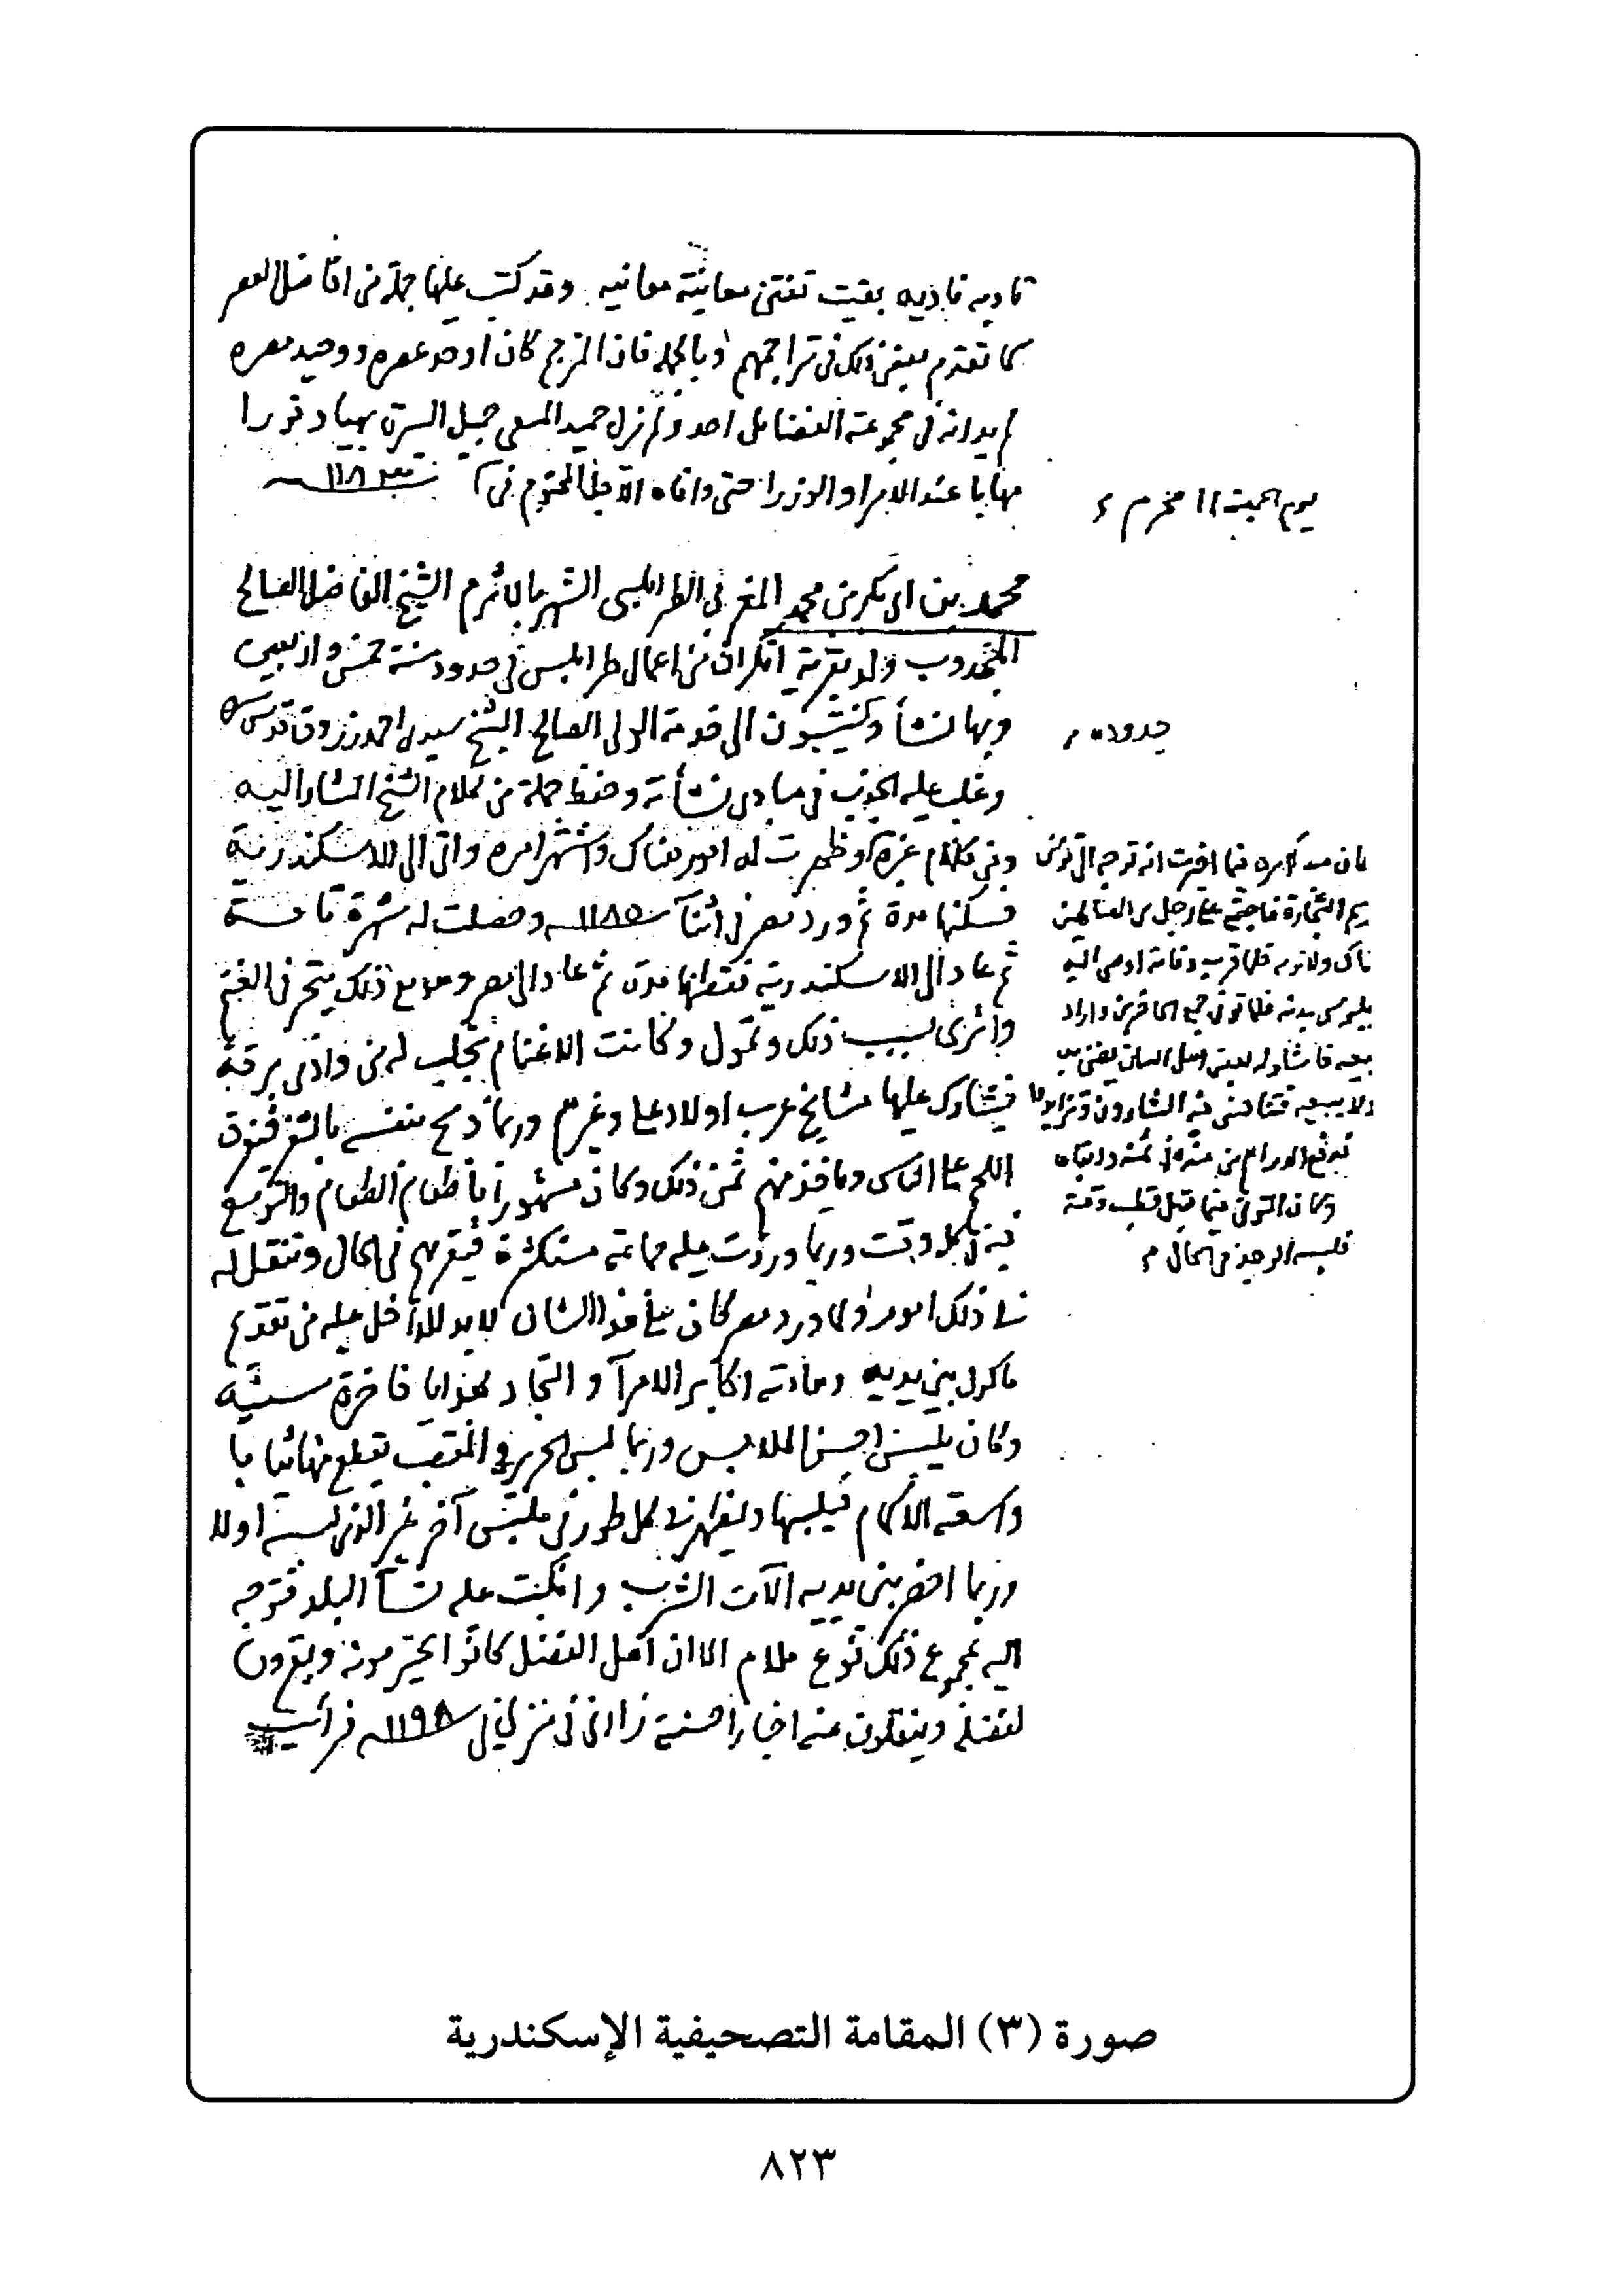 تأديه فاديه بقيت تفتى معانيه وقد كتب عليها جملة من افاضل العصر
كما تقدم بعض ذلك في تراجمهم وبالجملة فان المترجم كان اوحد عصره ووحيد مصره
لم يدانه في مجموعته الفضائل احد ولم يزل حميد المسعى جميل السيرة بهيا وقورا
مهابا عند الامرا والوزرا حتى وافاه الاجل المحتوم في
يوم ١١ محرم
محمد بن ابي بكر بن محمد المغربي الطرابلسي الشهير بالاثرم الشيخ الفاضل الصالح
المجذوب ولد بقرية انكران من اعمال طرابلس في حدود سنة خمس واربعين
وبها نشأ وينتسبون الى خدمة الولي الصالح الشيخ سيدي احمد زروق قدس سره
جدوده
وغلب عليه الجذب في مبادي نشأته وحفظ جملة من كلام الشيخ المشار اليه
وفي كلام غيره وظهرت له امور هناك واشتهر امره واتى الى الاسكندرية
فسكنها مدة ثم ورد مصر في اثنآ ١١٨٥ وحصلت له شهرة تامة
ثم عاد الى الاسكندرية فقطنها مدة ثم عاد الى مصر وهو مع ذلك يتجر في الغنم
واثرى بسبب ذلك وتمول وكانت الاغنام تجلب له من وادي برقة
فيشارك عليها مشايخ عرب اولاد علي وغيرهم وربما ذبح بنفسه بالثغر فيفرق
اللحم على الناس وياخذ منهم ثمن ذلك وكان مشهورا باطعام الطعام والتوسع
فيه في كل وقت وربما وردت عليه جماعة مستكثرة فيقريهم في الحال وتنقل له
في ذلك امور ولما ورد مصر كان على هذا الشان لابد للداخل عليه من تقديم
ماكول بين يديه وهادته اكابر الامرآ والتجار بهدايا فاخرة سنية
وكان يلبس احسن الملابس وربما لبس الحرير المقصب يقطع منها ثيابا
واسعة الاكمام فيلبسها ويظهر في كل طور في ملبس آخر غير الذي لبسه اولا
وربما احضر بين يديه آلات الشرب وانكبت عليه نسآ البلد فتوجه
اليه بمجموع ذلك نوع ملام الا ان اهل الفضل كانوا يحترمونه ويقرون
لفضله وينقلون عنه اخبارا حسنة زارني في منزلي في ١١٩٨ فرأيت
امره فيما اخبرت انه توجه الى تونس
التجارة فاجتمع على رجل من الصالحين
هناك ولازمه فلما قربت وفاته اوصى اليه
بملبوس بدنه فلما توفي جمع الحاضرين واراد
بيعه فاشار له بعض اهل الشان يضن به
ولا يبيعه فتنافس فيه الشارون وتزايدوا
فدفع الدراهم من عنده في ثمنه وابقاه
وكان المتوفى فيما قيل قطب وقته
فلبسه الوجد في الحال
صورة (٣) المقامة التصحيفية الإسكندرية
٨٢٣